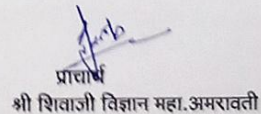 प्राचार्य
श्री शिवाजी विज्ञान महा.अमरावती